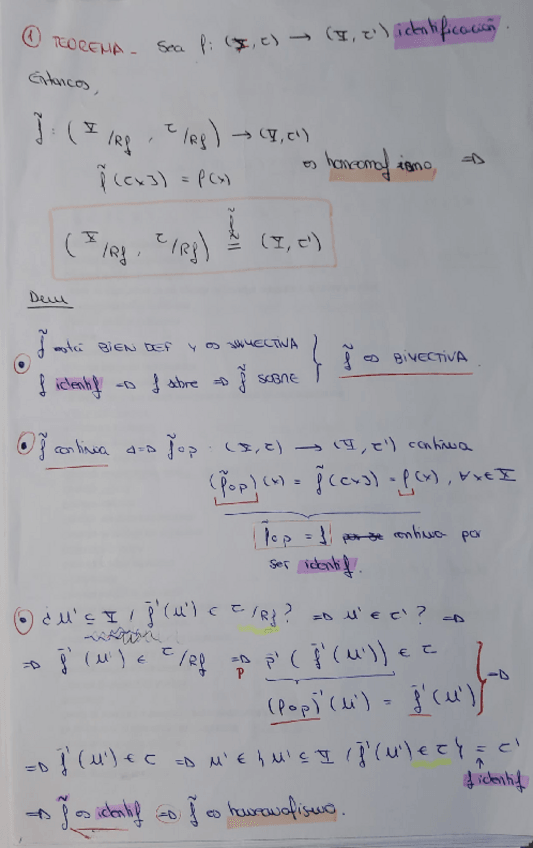 ① TEOREMA - Sea f: (X, τ) → (Y, τ') identificación.
Entonces,
f̃ : (X/Rf , τ/Rf) → (Y, τ')
f̃([x]) = f(x) es homeomofismo ⇒
(X/Rf , τ/Rf) ≅^f̃ (Y, τ')
Dem
• f̃ está BIEN DEF Y es INYECTIVA
f identif ⇒ f sobre ⇒ f̃ SOBRE } f̃ es BIYECTIVA.
• f̃ continua ⇔ f̃∘p : (X, τ) → (Y, τ') continua
(f̃∘p)(x) = f̃([x]) = f(x), ∀x∈X
f̃∘p = f continua por
ser identif.
• ¿ U' ⊆ Y / f̃⁻¹(U') ∈ τ/Rf ? ⇒ U' ∈ τ' ? ⇒
⇒ f̃⁻¹(U') ∈ τ/Rf ⇒ p p⁻¹(f̃⁻¹(U')) ∈ τ
(f̃∘p)⁻¹(U') = f⁻¹(U') } ⇒
⇒ f⁻¹(U') ∈ τ ⇒ U' ∈ { U' ⊆ Y / f⁻¹(U') ∈ τ } = τ'
f identif
⇒ f̃ es identif ⇒ f̃ es homeomofismo.